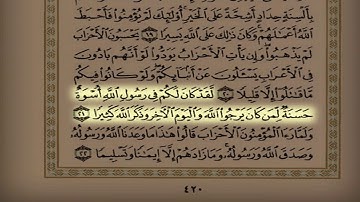 بِأَلْسِنَةٍ حِدَادٍ أَشِحَّةً عَلَى الْخَيْرِ أُوْلَٰئِكَ لَمْ يُؤْمِنُوا فَأَحْبَطَ
اللَّهُ أَعْمَٰلَهُمْ وَكَانَ ذَٰلِكَ عَلَى اللَّهِ يَسِيرًا ١٩ يَحْسَبُونَ الْأَحْزَابَ
لَمْ يَذْهَبُوا وَإِن يَأْتِ الْأَحْزَابُ يَوَدُّوا لَوْ أَنَّهُم بَادُونَ
فِي الْأَعْرَابِ يَسْـَٔلُونَ عَنْ أَنۢبَآئِكُمْ وَلَوْ كَانُوا فِيكُم
مَّا قَٰتَلُوا إِلَّا قَلِيلًا ٢٠ لَّقَدْ كَانَ لَكُمْ فِي رَسُولِ اللَّهِ أُسْوَةٌ
حَسَنَةٌ لِّمَن كَانَ يَرْجُوا اللَّهَ وَالْيَوْمَ الْآخِرَ وَذَكَرَ اللَّهَ كَثِيرًا ٢١
وَلَمَّا رَءَا الْمُؤْمِنُونَ الْأَحْزَابَ قَالُوا هَٰذَا مَا وَعَدَنَا اللَّهُ وَرَسُولُهُ
وَصَدَقَ اللَّهُ وَرَسُولُهُ وَمَا زَادَهُمْ إِلَّا إِيمَٰنًا وَتَسْلِيمًا ٢٢
٤٢٠